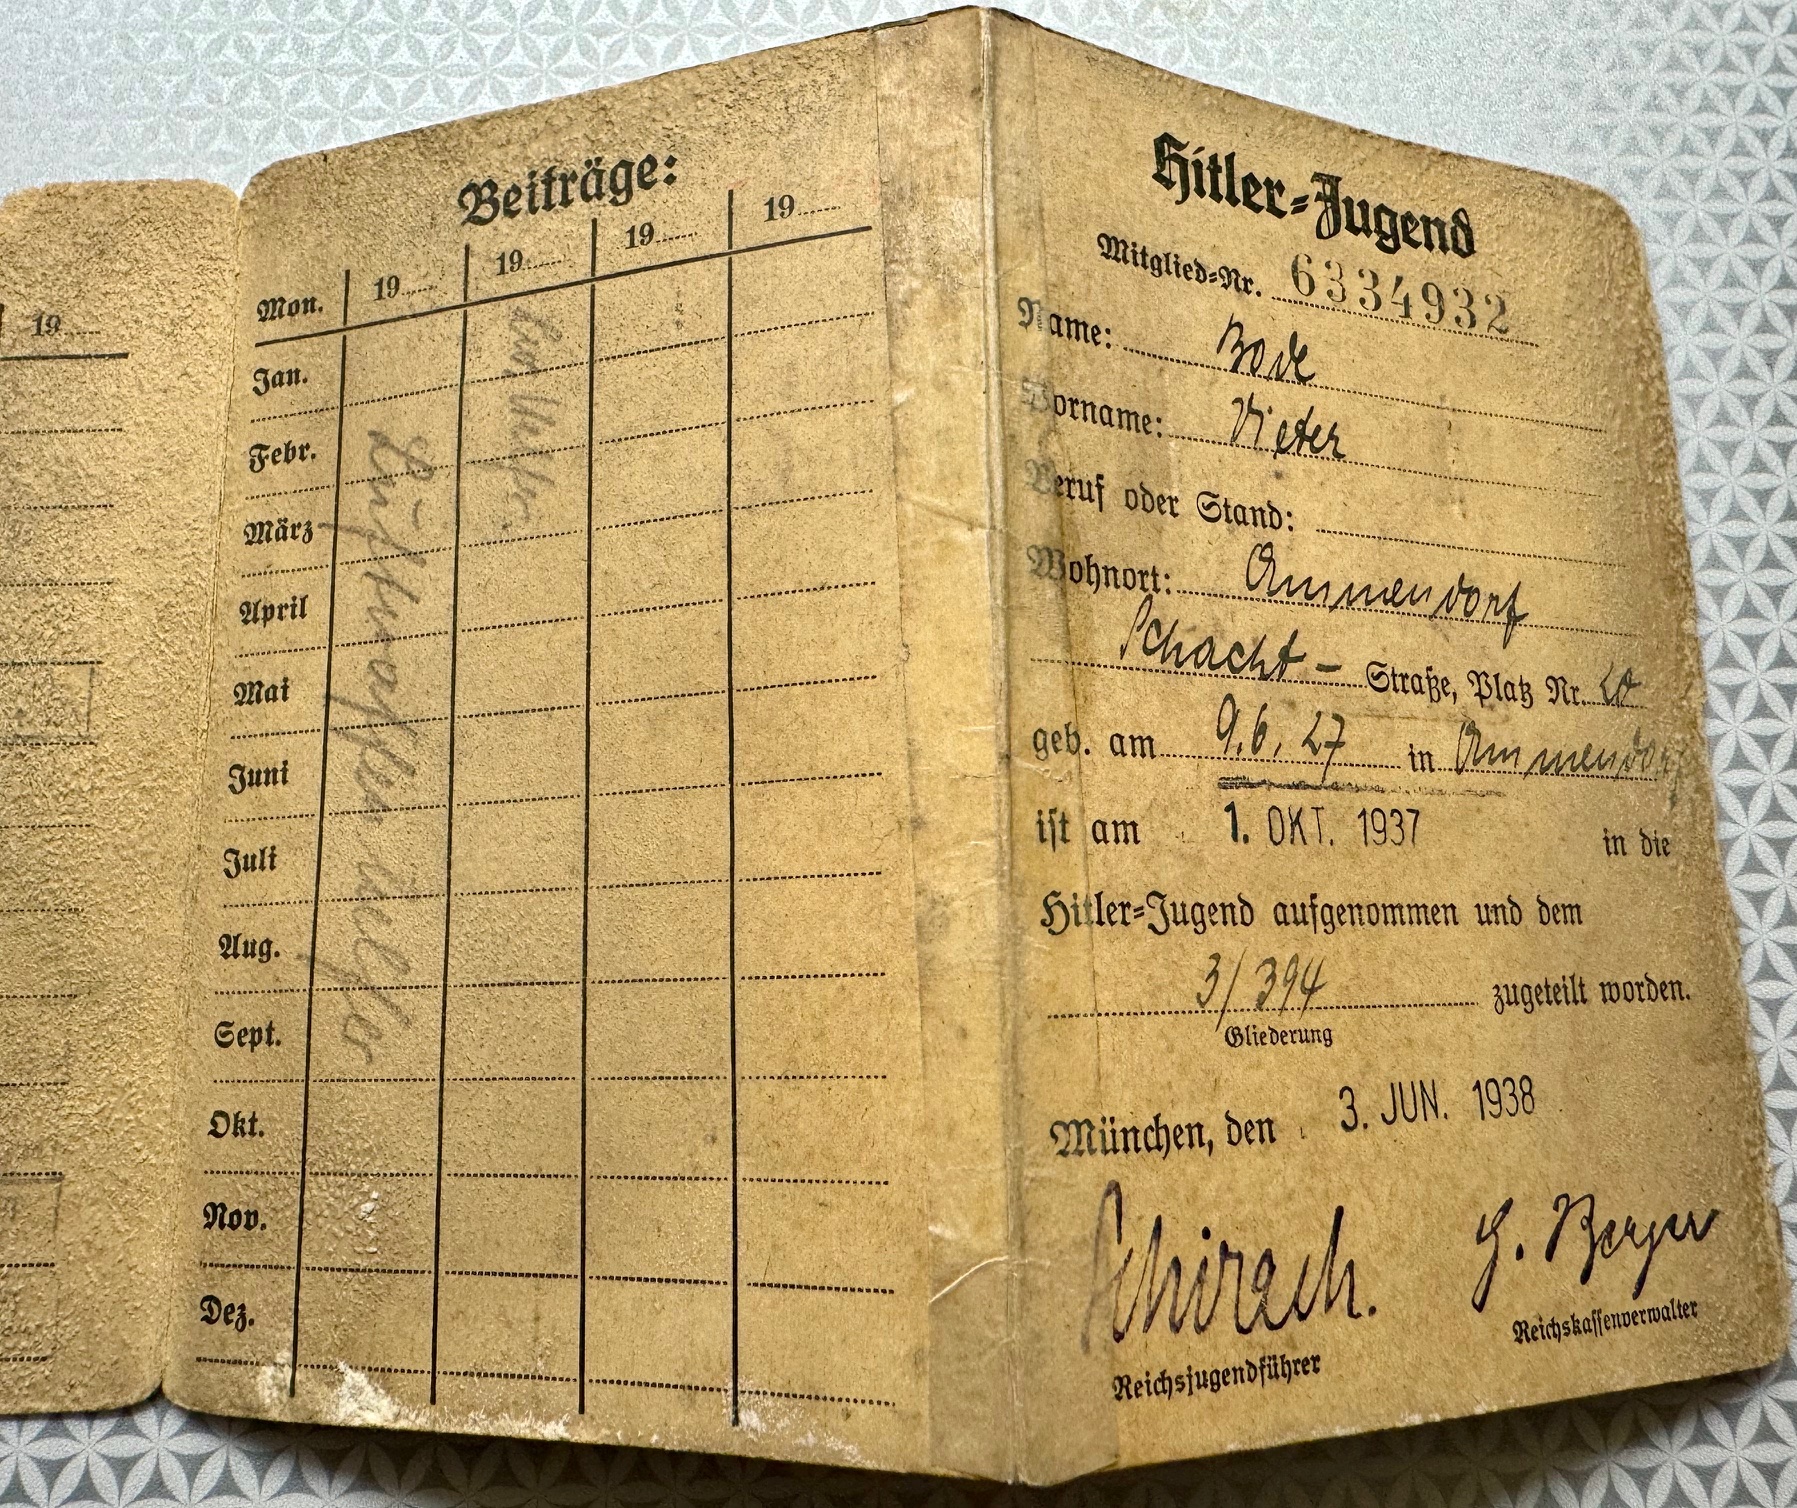 19
Beiträge:
Mon. 19 19 19 19
Jan.
Febr.
März
April
Mai
Juni
Juli
Aug.
Sept.
Okt.
Nov.
Dez.
Luftwaffenhelfer
Hitler-Jugend
Mitglied-Nr. 6334932
Name: Bode
Vorname: Dieter
Beruf oder Stand:
Wohnort: Ammendorf
Schacht- Straße, Platz Nr. 20
geb. am 9.6.27 in Ammendorf
ist am 1. OKT. 1937 in die
Hitler-Jugend aufgenommen und dem
3/394 zugeteilt worden.
Gliederung
München, den 3. JUN. 1938
Schirach. G. Berger
Reichsjugendführer Reichskassenverwalter